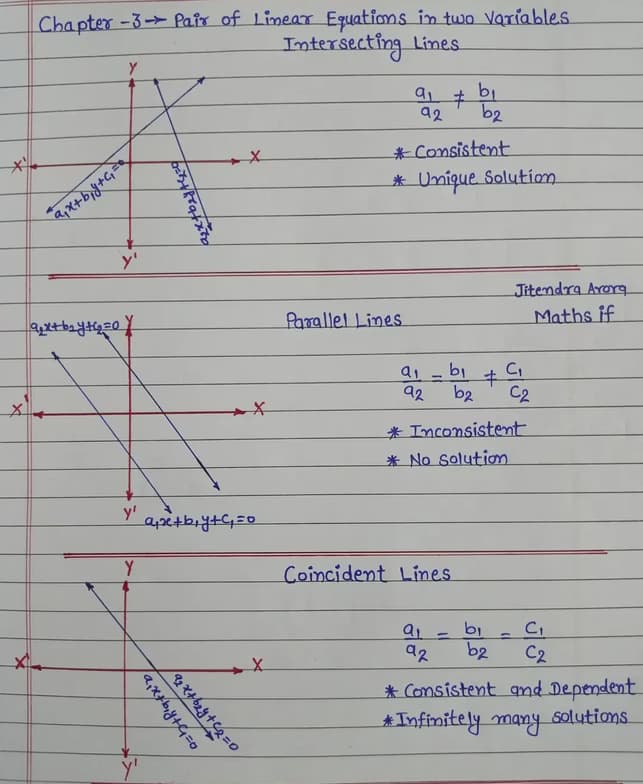 Chapter -3→ Pair of Linear Equations in two Variables
Intersecting Lines
Y
X' X
Y'
a₁x+b₁y+c₁=0
a₂x+b₂y+c₂=0
a₁/a₂ ≠ b₁/b₂
* Consistent
* Unique Solution
Jitendra Arora
Maths if
Parallel Lines
a₂x+b₂y+c₂=0
Y
X' X
Y'
a₁x+b₁y+c₁=0
a₁/a₂ = b₁/b₂ ≠ C₁/C₂
* Inconsistent
* No Solution
Coincident Lines
Y
X' X
Y'
a₂x+b₂y+c₂=0
a₁x+b₁y+c₁=0
a₁/a₂ = b₁/b₂ = C₁/C₂
* Consistent and Dependent
* Infinitely many solutions